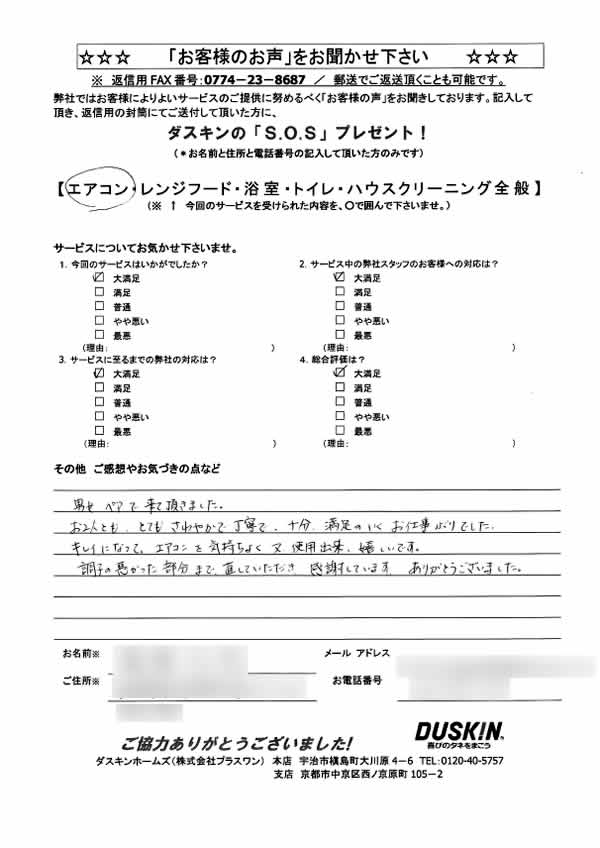 ☆☆☆ 「お客様のお声」をお聞かせ下さい ☆☆☆
※ 返信用FAX番号:0774-23-8687 / 郵送でご返送頂くことも可能です。
弊社ではお客様によりよいサービスのご提供に努めるべく「お客様の声」をお聞きしております。記入して
頂き、返信用の封筒にてご送付して頂いた方に、
ダスキンの「S.O.S」プレゼント!
(*お名前と住所と電話番号の記入して頂いた方のみです)
【エアコン・レンジフード・浴室・トイレ・ハウスクリーニング全般】
(※ ↑ 今回のサービスを受けられた内容を、〇で囲んで下さいませ。)
サービスについてお気かせ下さいませ。
1. 今回のサービスはいかがでしたか?
☑ 大満足
□ 満足
□ 普通
□ やや悪い
□ 最悪
(理由: )
2. サービス中の弊社スタッフのお客様への対応は?
☑ 大満足
□ 満足
□ 普通
□ やや悪い
□ 最悪
(理由: )
3. サービスに至るまでの弊社の対応は?
☑ 大満足
□ 満足
□ 普通
□ やや悪い
□ 最悪
(理由: )
4. 総合評価は?
☑ 大満足
□ 満足
□ 普通
□ やや悪い
□ 最悪
(理由: )
その他 ご感想やお気づきの点など
男女 ペアで来て頂きました。
お2人とも、とてもさわやかで丁寧で、十分、満足のいくお仕事ぶりでした。
キレイになって、エアコンを気持ちよく又使用出来、嬉しいです。
調子の悪かった部分まで、直していただき 感謝しています。ありがとうございました。
お名前※
メール アドレス
ご住所※
お電話番号
ご協力ありがとうございました!
DUSKIN
喜びのタネをまこう
ダスキンホームズ(株式会社プラスワン) 本店 宇治市槇島町大川原4-6 TEL:0120-40-5757
支店 京都市中京区西ノ京原町105-2